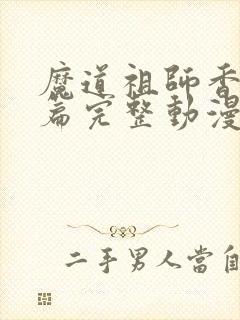 魔道祖師香
篇完整動漫
二手男人當自